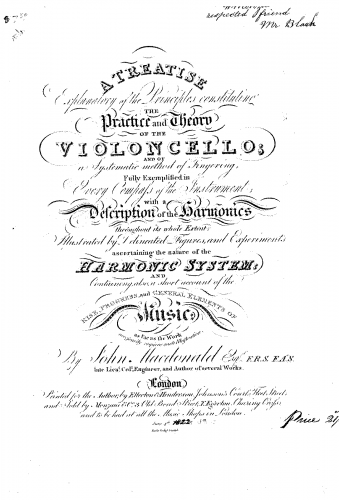 respected friend
Mr. Black
A TREATISE
Explanatory of the Principles constituting
THE
Practice and Theory
OF THE
VIOLONCELLO;
AND OF
a Systematic method of Fingering;
Fully Exemplified in
Every Compass of the Instrument;
with a
Description of the Harmonics
throughout its whole Extent;
Illustrated by Delineated Figures, and Experiments
ascertaining the nature of the
HARMONIC SYSTEM;
AND
Containing also, a short account of the
RISE, PROGRESS, and GENERAL ELEMENTS OF
Music,
as far as the Work
By John Macdonald Esq. F.R.S. F.A.S.
late Lieut. Col. Engineer, and Author of several Works.
London
Printed for the Author, by Henderson Johnson's Court, Fleet Street,
and Sold by Monzani & Co. 3 Old Bond Street, Charing Cross,
and to be had at all the Music Shops in London.
1822
Price